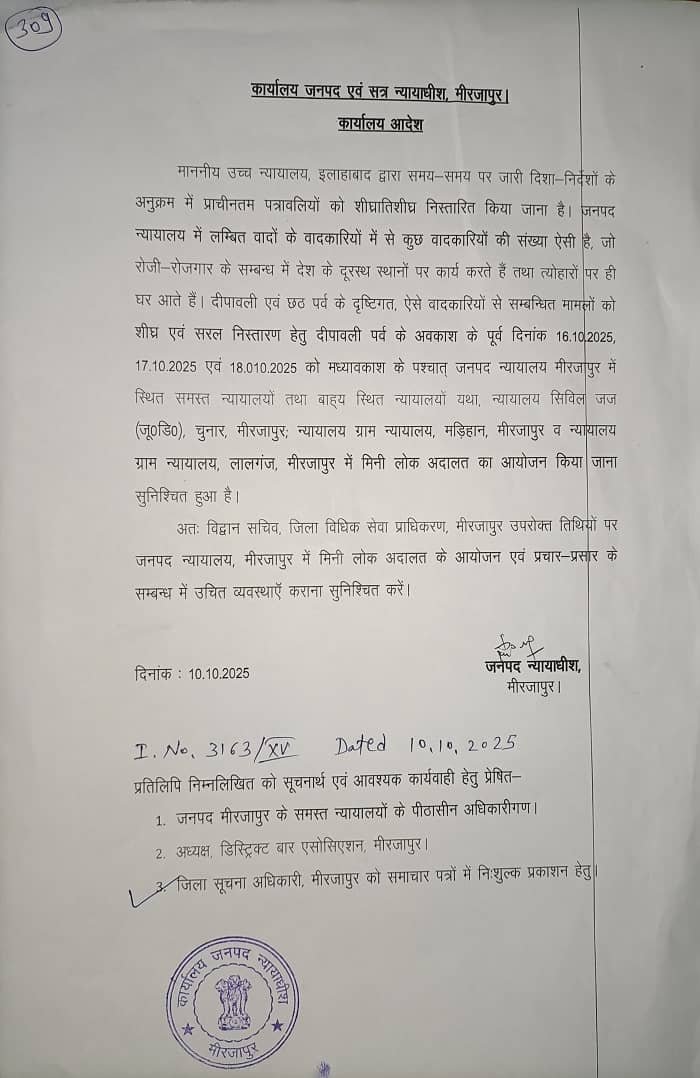 309
कार्यालय जनपद एवं सत्र न्यायाधीश, मीरजापुर।
कार्यालय आदेश
माननीय उच्च न्यायालय, इलाहाबाद द्वारा समय–समय पर जारी दिशा–निर्देशों के
अनुक्रम में प्राचीनतम पत्रावलियों को शीघ्रातिशीघ्र निस्तारित किया जाना है। जनपद
न्यायालय में लम्बित वादों के वादकारियों में से कुछ वादकारियों की संख्या ऐसी है, जो
रोजी–रोजगार के सम्बन्ध में देश के दूरस्थ स्थानों पर कार्य करते हैं तथा त्योहारों पर ही
घर आते हैं। दीपावली एवं छठ पर्व के दृष्टिगत, ऐसे वादकारियों से सम्बन्धित मामलों को
शीघ्र एवं सरल निस्तारण हेतु दीपावली पर्व के अवकाश के पूर्व दिनांक 16.10.2025,
17.10.2025 एवं 18.010.2025 को मध्यावकाश के पश्चात् जनपद न्यायालय मीरजापुर में
स्थित समस्त न्यायालयों तथा बाह्य स्थित न्यायालयों यथा, न्यायालय सिविल जज
(जू0डि0), चुनार, मीरजापुर; न्यायालय ग्राम न्यायालय, मड़िहान, मीरजापुर व न्यायालय
ग्राम न्यायालय, लालगंज, मीरजापुर में मिनी लोक अदालत का आयोजन किया जाना
सुनिश्चित हुआ है।
अतः विद्वान सचिव, जिला विधिक सेवा प्राधिकरण, मीरजापुर उपरोक्त तिथियों पर
जनपद न्यायालय, मीरजापुर में मिनी लोक अदालत के आयोजन एवं प्रचार–प्रसार के
सम्बन्ध में उचित व्यवस्थाऍ कराना सुनिश्चित करें।
जनपद न्यायाधीश,
दिनांक : 10.10.2025
मीरजापुर।
I. No. 3163/XV Dated 10.10.2025
प्रतिलिपि निम्नलिखित को सूचनार्थ एवं आवश्यक कार्यवाही हेतु प्रेषित–
1. जनपद मीरजापुर के समस्त न्यायालयों के पीठासीन अधिकारीगण।
2. अध्यक्ष, डिस्ट्रिक्ट बार एसोसिएशन, मीरजापुर।
3. जिला सूचना अधिकारी, मीरजापुर को समाचार पत्रों में निःशुल्क प्रकाशन हेतु।
कार्यालय जनपद न्यायाधीश
मीरजापुर